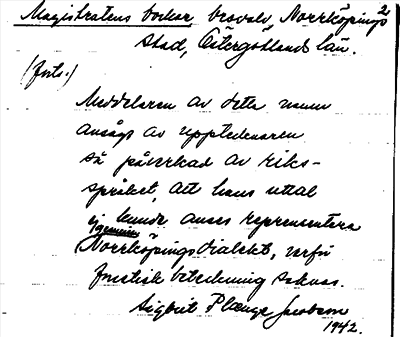 Magistratens backar, brovalv, Norrköpings 2
stad, Östergötlands län.
(forts.)
Meddelaren av detta namn
ansågs av upptecknaren
så påverkad av riks-
språket, att hans uttal
ej kunde anses representera
genuin
Norrköpingsdialekt, varför
fonetisk beteckning saknas.
Sigbrit Plænge Jacobson
1942.